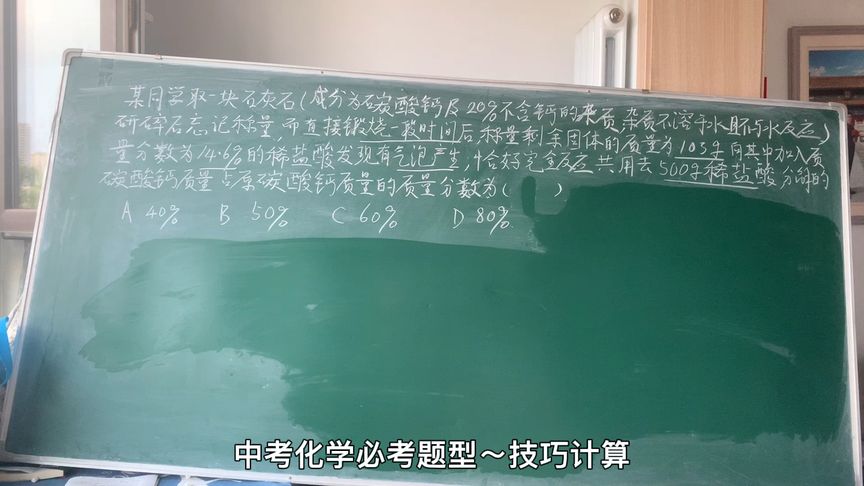 某同学取一块石灰石(成分为碳酸钙及20%不含钙的杂质 杂质不溶于水且不与水反应)
研碎后忘记称量,而直接锻烧一段时间后,称量剩余固体的质量为103g 向其中加入质
量分数为14.6%的稀盐酸发现有气泡产生,恰好完全反应 共用去500g稀盐酸 分解的
碳酸钙质量占原碳酸钙质量的质量分数为( )
A 40% B 50% C 60% D 80%
中考化学必考题型~技巧计算